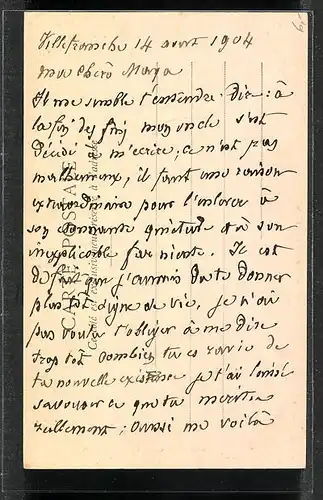 Villefranche 14 avril 1904
ma chère Marga
Il me semble t'entendre dire : à
la fin des fins mon oncle s'est
décidé à m'écrire ; ce n'est pas
malheureux, il faut une raison
extraordinaire pour l'enlever à
son étonnante quiétude et à son
inexplicable farniente. Il est
de fait que j'aurais du te donner
plus tôt signe de vie, je n'ai
pas voulu t'obliger à me dire
trop tôt combien tu es ravie de
ta nouvelle existence je t'ai laissé
savourer ce que tu mérites
réellement ; aussi me voilà
CARTE POSTALE
Ce côté est exclusivement réservé à l'adresse